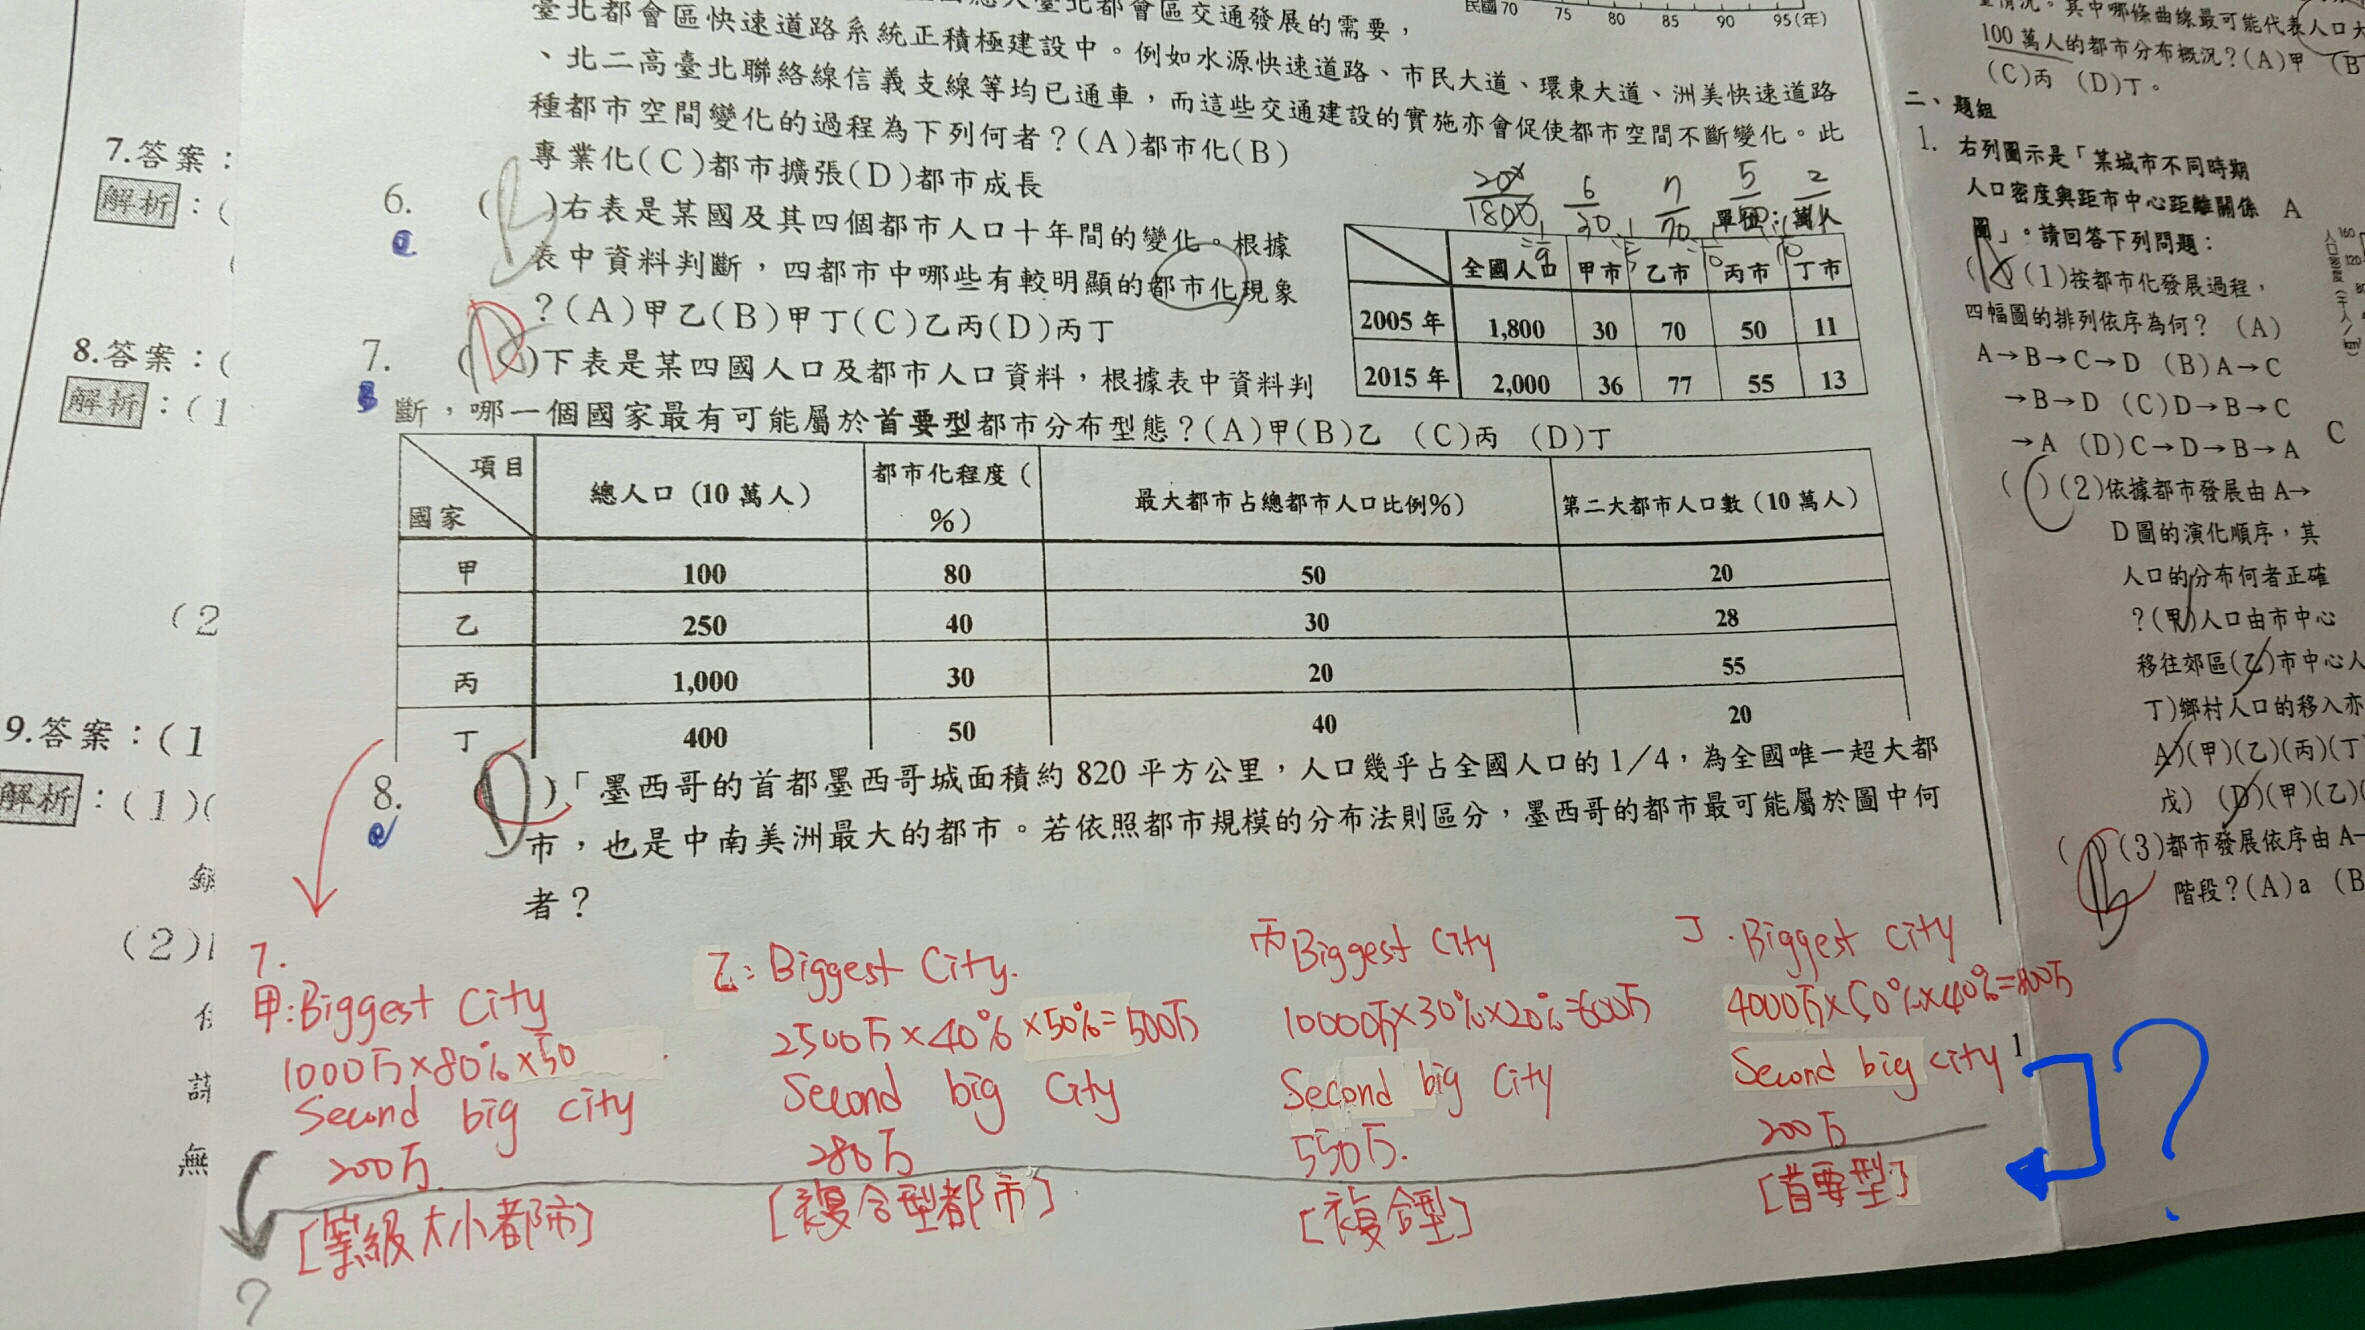 臺北都會區快速道路系統正積極建設中。例如水源快速道路、市民大道、環東大道、洲美快速道路
臺北都會區交通發展的需要，
、北二高臺北聯絡線信義支線等均已通車，而這些交通建設的實施亦會促使都市空間不斷變化。此
種都市空間變化的過程為下列何者？(A)都市化(B)
專業化(C)都市擴張(D)都市成長
民國70 75 80 85 90 95(年)
6. ( )右表是某國及其四個都市人口十年間的變化。根據
表中資料判斷，四都市中哪些有較明顯的都市化現象
？(A)甲乙(B)甲丁(C)乙丙(D)丙丁
單位：萬人
全國人口 甲市 乙市 丙市 丁市
2005年 1,800 30 70 50 11
2015年 2,000 36 77 55 13
7. ( )下表是某四國人口及都市人口資料，根據表中資料判
斷，哪一個國家最有可能屬於首要型都市分布型態？(A)甲(B)乙 (C)丙 (D)丁
項目
國家
總人口 (10 萬人)
都市化程度(
%)
最大都市占總都市人口比例%)
第二大都市人口數 (10 萬人)
甲 100 80 50 20
乙 250 40 30 28
丙 1,000 30 20 55
丁 400 50 40 20
8. ( )「墨西哥的首都墨西哥城面積約 820 平方公里，人口幾乎占全國人口的 1/4，為全國唯一超大都
市，也是中南美洲最大的都市。若依照都市規模的分布法則區分，墨西哥的都市最可能屬於圖中何
者？
7.
甲:Biggest City
1000万×80%×50
Second big city
200万
[等級大小都市]
乙: Biggest City.
2500万×40%×50%=500万
Second big City
280万
[複合型都市]
丙Biggest City
10000万×30%×20%=600万
Second big City
550万.
[複合型]
丁.Biggest City
4000万×50%×40%=800万
Second big city
200万
[首要型]
?
?
1
7.答案：
解析：(
8.答案：(
解析：(1
(2
9.答案：(1
解析：(1)(
(2)
無
100萬人的都市分布概況？(A)甲 (B
(C)丙 (D)丁。
二、題組
1. 右列圖示是「某城市不同時期
人口密度與距市中心距離關係
圖」。請回答下列問題：
( )(1)按都市化發展過程，
四幅圖的排列依序為何？ (A)
A→B→C→D (B)A→C
→B→D (C)D→B→C
→A (D)C→D→B→A
( )(2)依據都市發展由A→
D圖的演化順序，其
人口的分布何者正確
？(甲)人口由市中心
移往郊區(乙)市中心人
丁)鄉村人口的移入亦
A)(甲)(乙)(丙)(丁
戊) (D)(甲)(乙)(
( )(3)都市發展依序由A
階段？(A)a (B
A
C